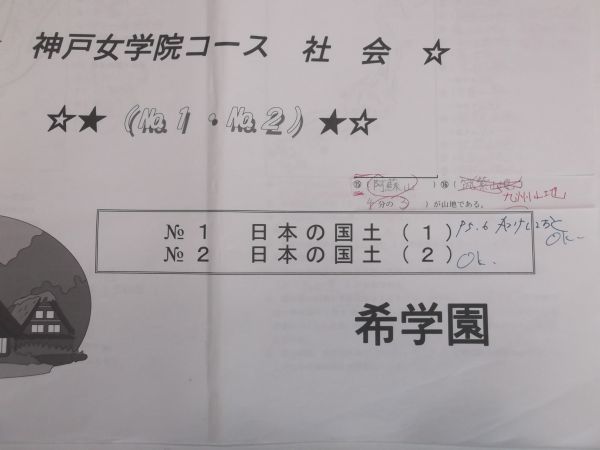 神戸女学院コース 社 会 ☆
☆★(№1・№2)★☆
⑮(阿蘇山)⑯(筑紫山地
九州山地
4分の3)が山地である。
№1 日本の国土(1) P5.6
OK.
№2 日本の国土(2) OK.
希学園